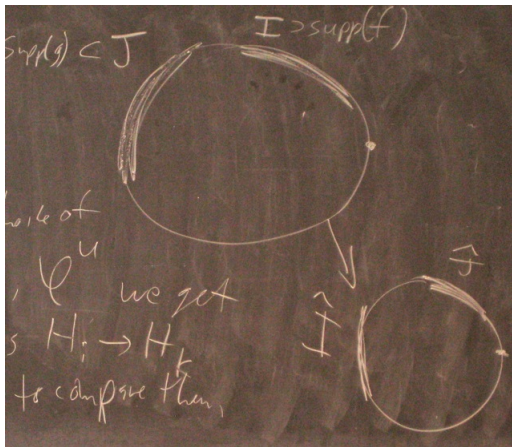 supp(g) ⊂ J
I ⊃ supp(f)
of
, φ^u we get
s H_i → H_k
to compare them,
Î
Ĵ